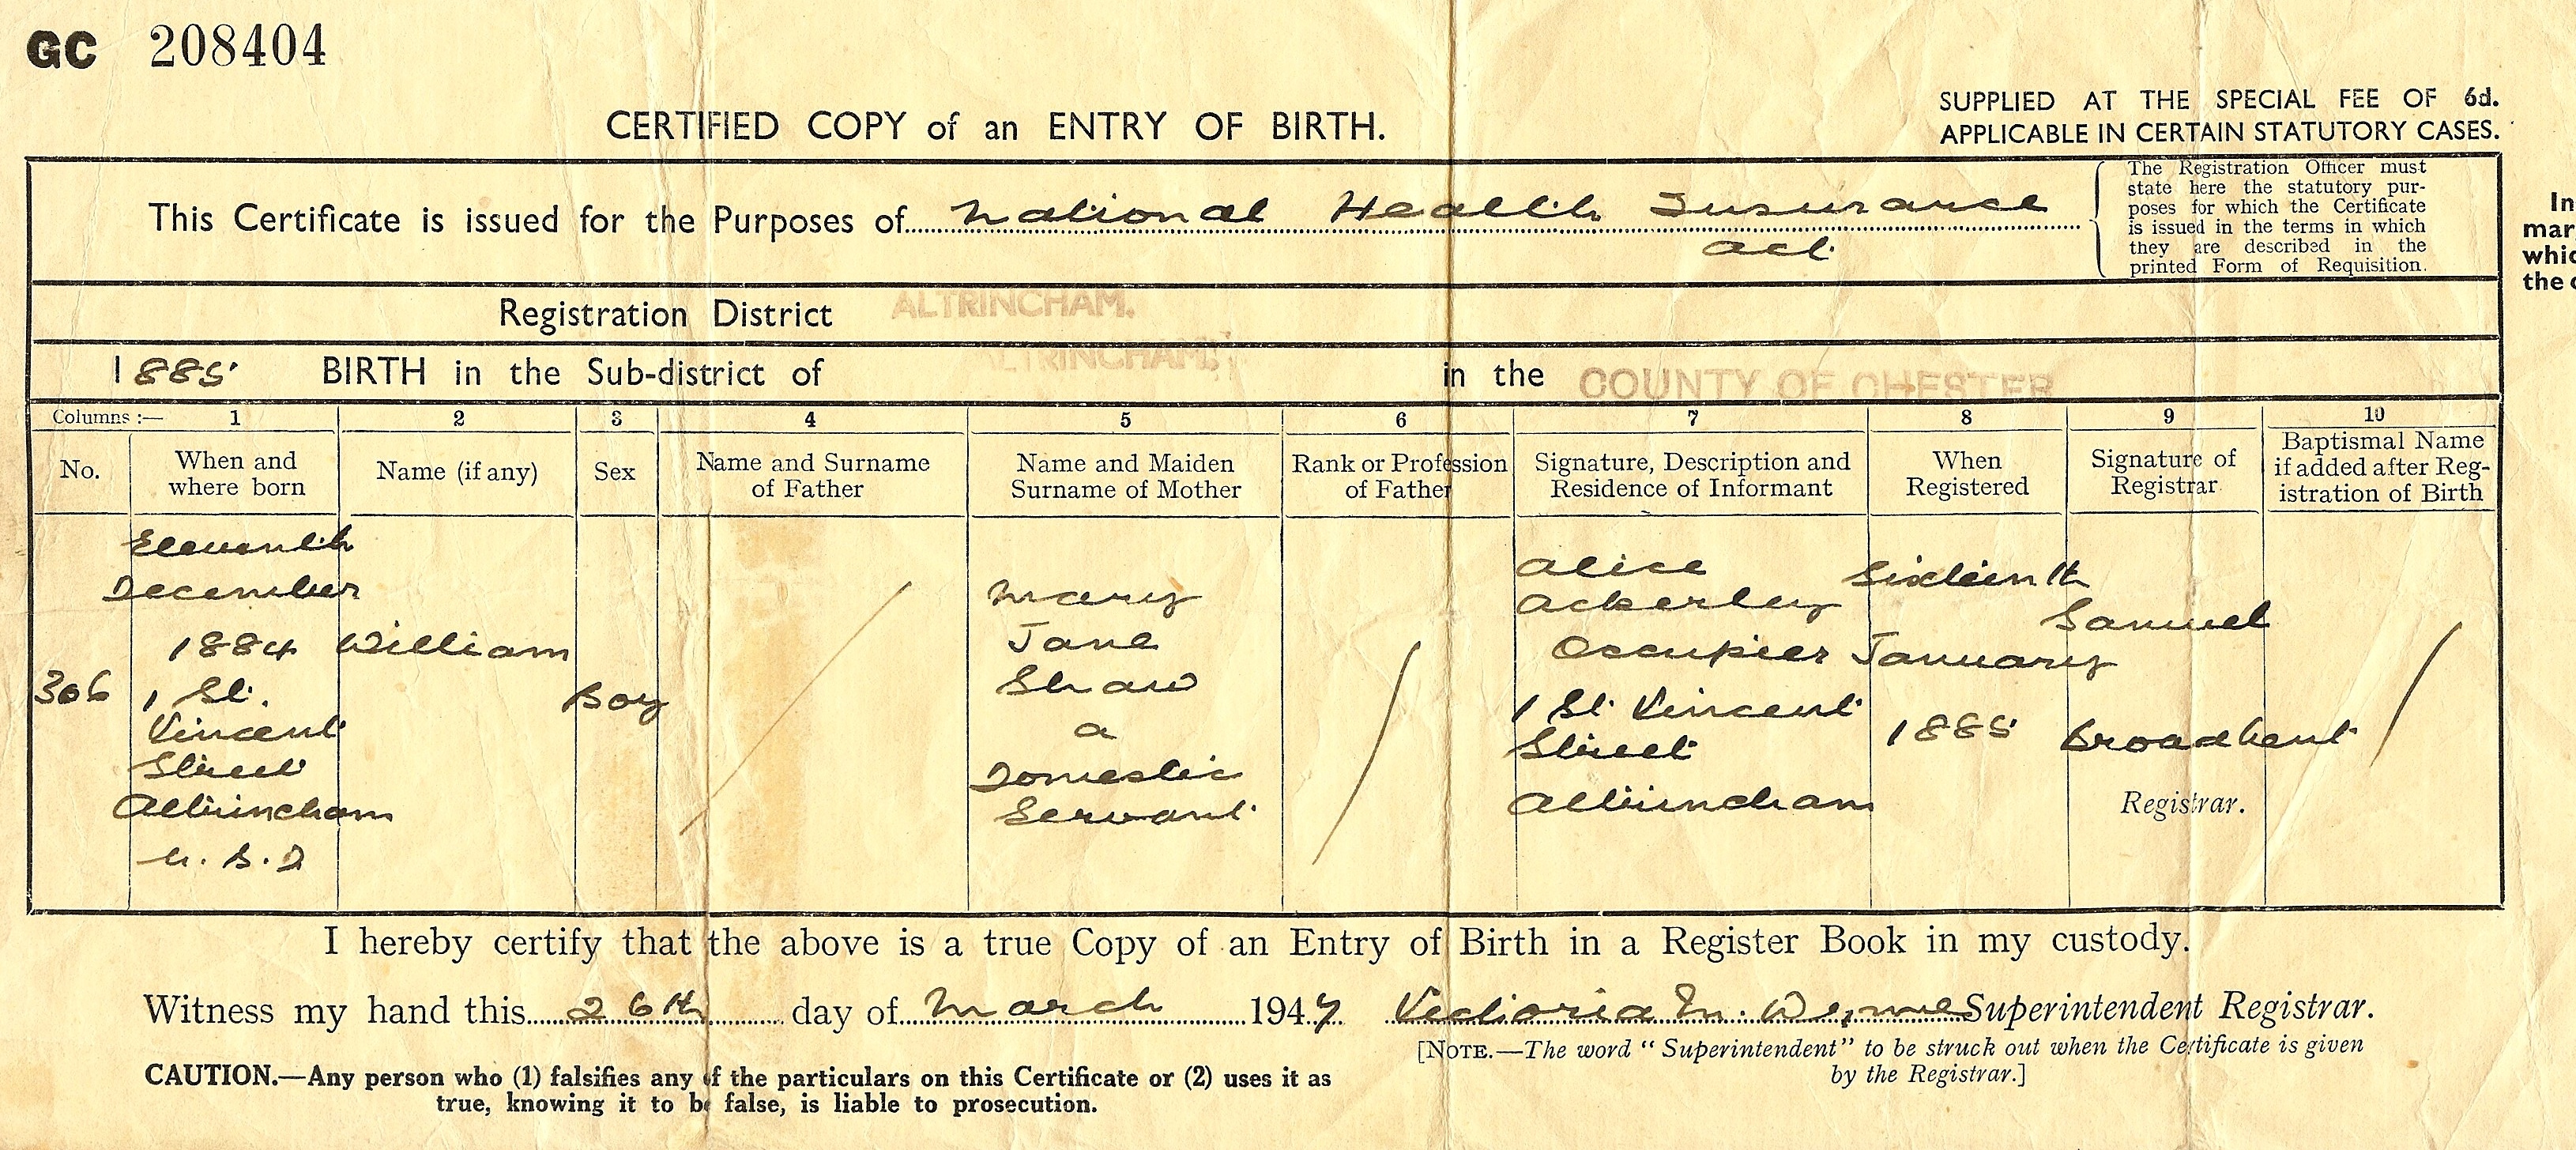 GC 208404
CERTIFIED COPY of an ENTRY OF BIRTH.
SUPPLIED AT THE SPECIAL FEE OF 6d.
APPLICABLE IN CERTAIN STATUTORY CASES.
This Certificate is issued for the Purposes of National Health Insurance
Act.
The Registration Officer must
state here the statutory pur-
poses for which the Certificate
is issued in the terms in which
they are described in the
printed Form of Requisition.
In
mar
whic
the c
Registration District ALTRINCHAM.
1885 BIRTH in the Sub-district of ALTRINCHAM. in the COUNTY OF CHESTER
Columns :— 1 2 3 4 5 6 7 8 9 10
No.
When and
where born
Name (if any)
Sex
Name and Surname
of Father
Name and Maiden
Surname of Mother
Rank or Profession
of Father
Signature, Description and
Residence of Informant
When
Registered
Signature of
Registrar
Baptismal Name
if added after Reg-
istration of Birth
306
Eleventh
December
1884
1 St.
Vincent
Street
Altrincham
U.S.D
William
Boy
Mary
Jane
Shaw
a
Domestic
Servant.
Alice
Ackerley
Occupier
1 St. Vincent
Street
Altrincham
Sixteenth
January
1885
Samuel
Broadbent.
Registrar.
I hereby certify that the above is a true Copy of an Entry of Birth in a Register Book in my custody.
Witness my hand this 26th day of March 1947 Victoria M. Superintendent Registrar.
[NOTE.—The word "Superintendent" to be struck out when the Certificate is given
by the Registrar.]
CAUTION.—Any person who (1) falsifies any of the particulars on this Certificate or (2) uses it as
true, knowing it to be false, is liable to prosecution.